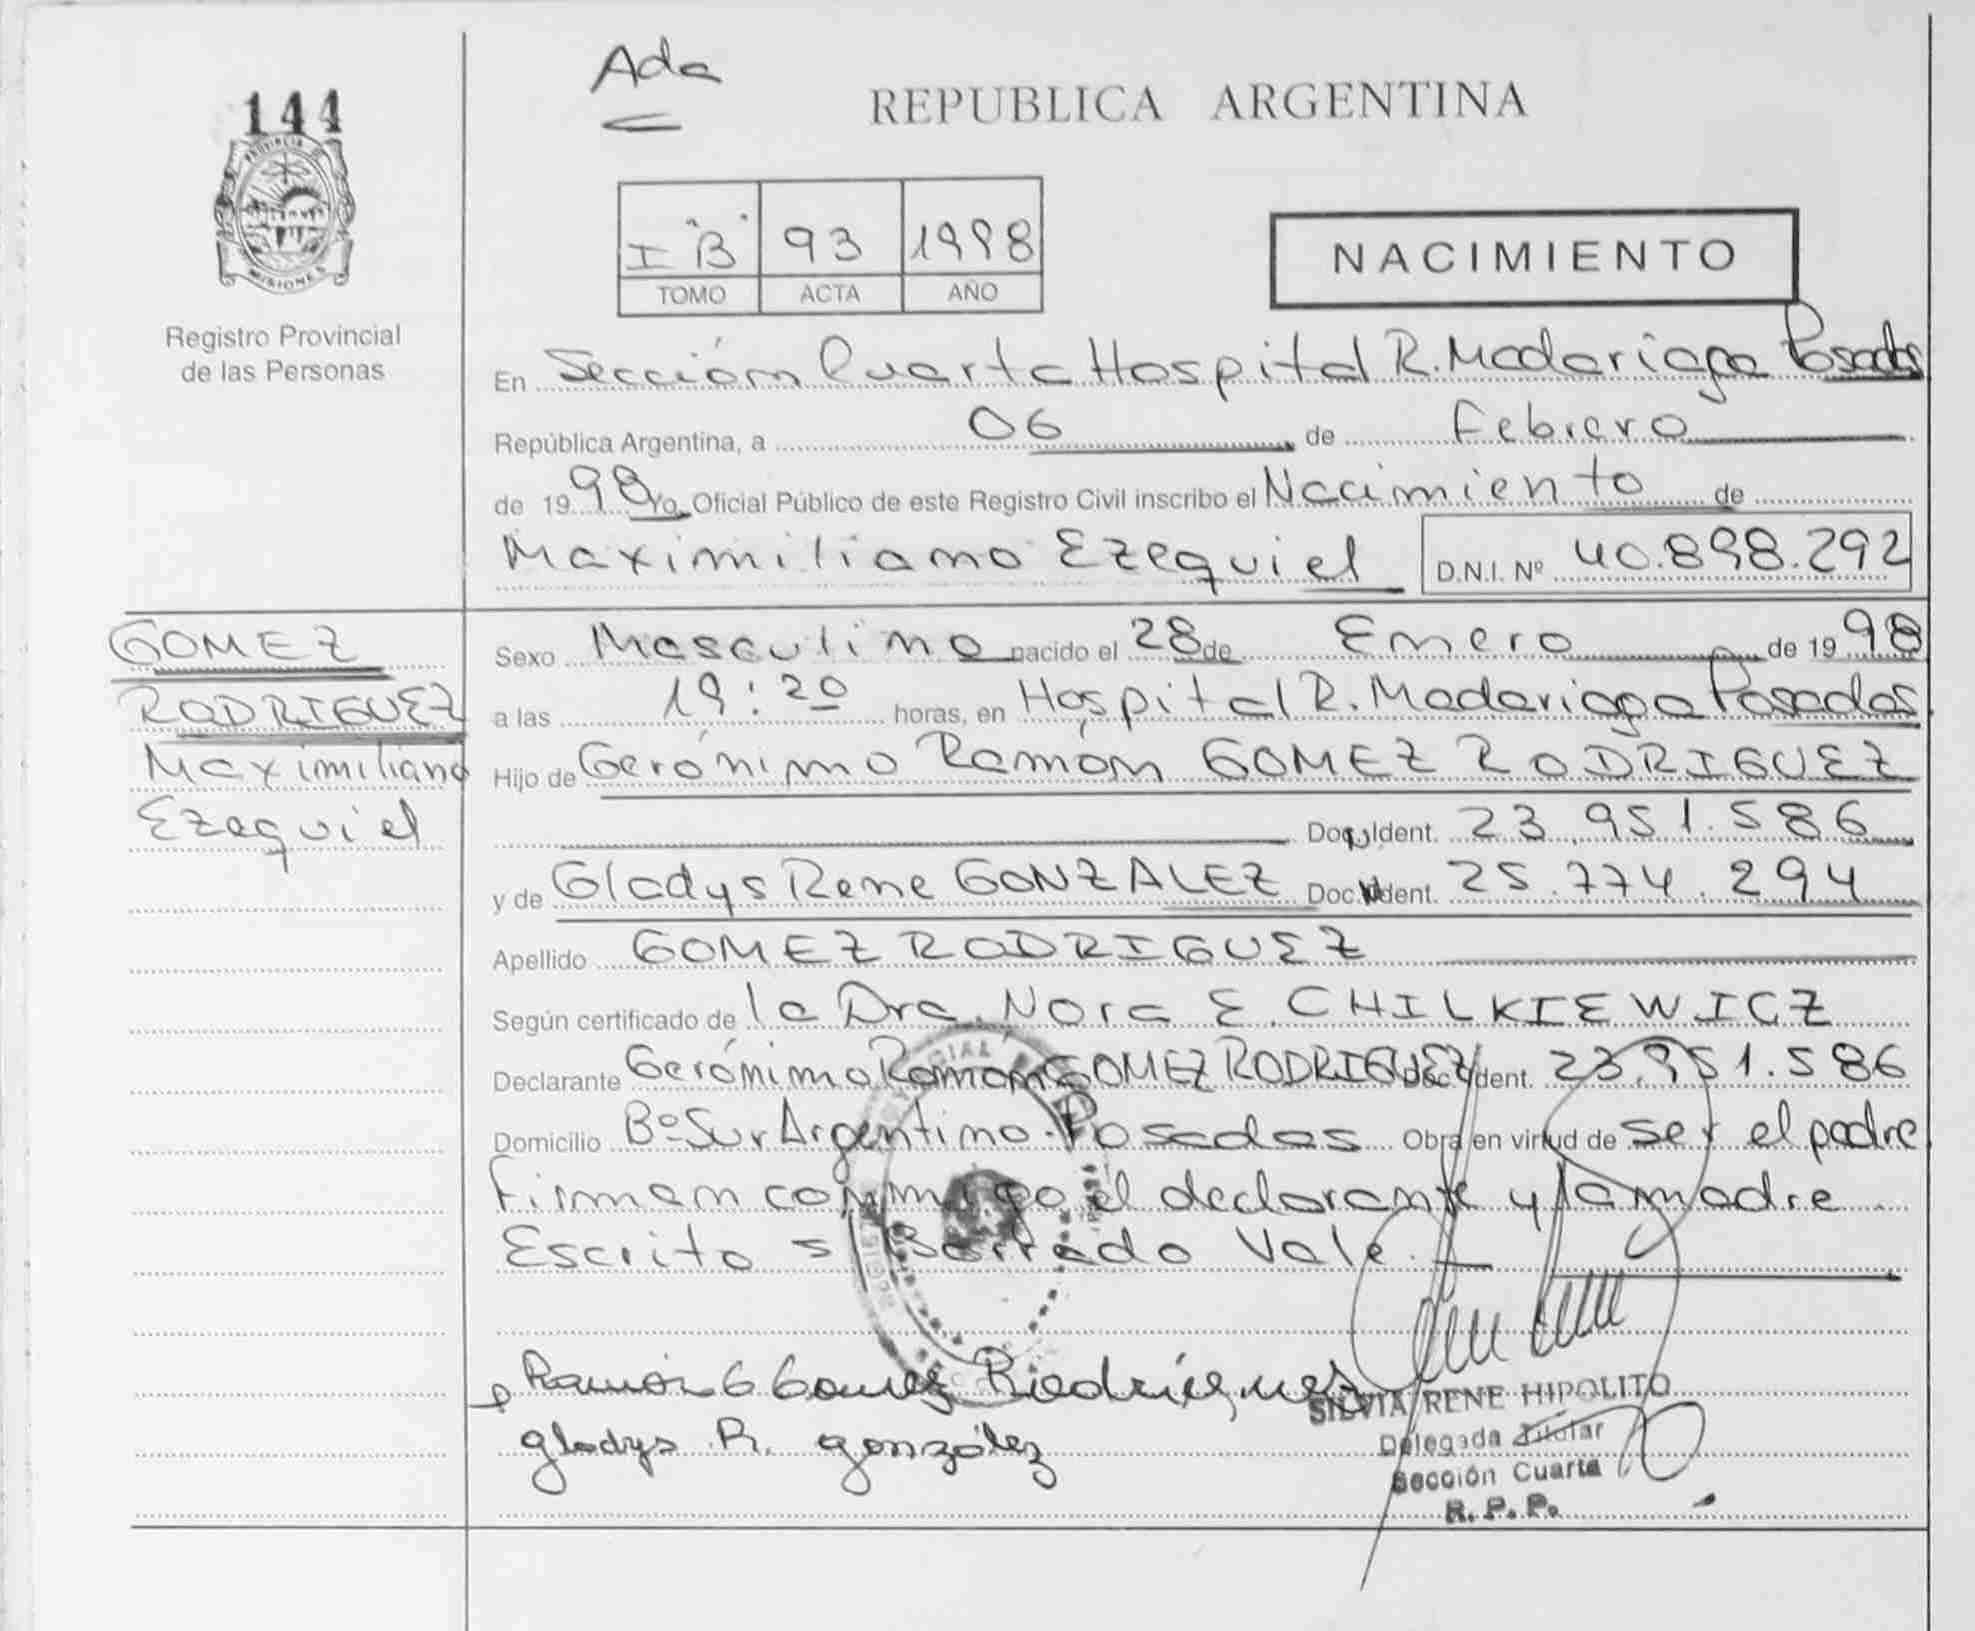 Ada
144
REPUBLICA ARGENTINA
PROVINCIA DE
MISIONES
Registro Provincial
de las Personas
I "B" 93 1998
TOMO ACTA AÑO
NACIMIENTO
En Sección Cuarta Hospital R. Madariaga Posadas
República Argentina, a 06 de Febrero
de 1998 Yo, Oficial Público de este Registro Civil inscribo el Nacimiento de
Maximiliano Ezequiel D.N.I. Nº 40.898.292
GOMEZ
RODRIGUEZ
Maximiliano
Ezequiel
Sexo Masculino nacido el 28 de Enero de 1998
a las 19:20 horas, en Hospital R. Madariaga Posadas
Hijo de Gerónimo Ramón GOMEZ RODRIGUEZ
Doc. Ident. 23.951.586
y de Gladys Rene GONZALEZ Doc. Ident. 25.774.294
Apellido GOMEZ RODRIGUEZ
Según certificado de la Dra. Nora E. CHILKIEWICZ
Declarante Gerónimo Ramon GOMEZ RODRIGUEZ Doc. Ident. 23.951.586
Domicilio Bº Sur Argentino - Posadas Obra en virtud de ser el padre
Firman conmigo el declarante y la madre
Escrito s/ Borrado Vale.
Ramón G Gomez Riedriegues
gladys R. gonzález
SILVIA RENE HIPOLITO
Delegada Titular
Sección Cuarta
R. P. P.